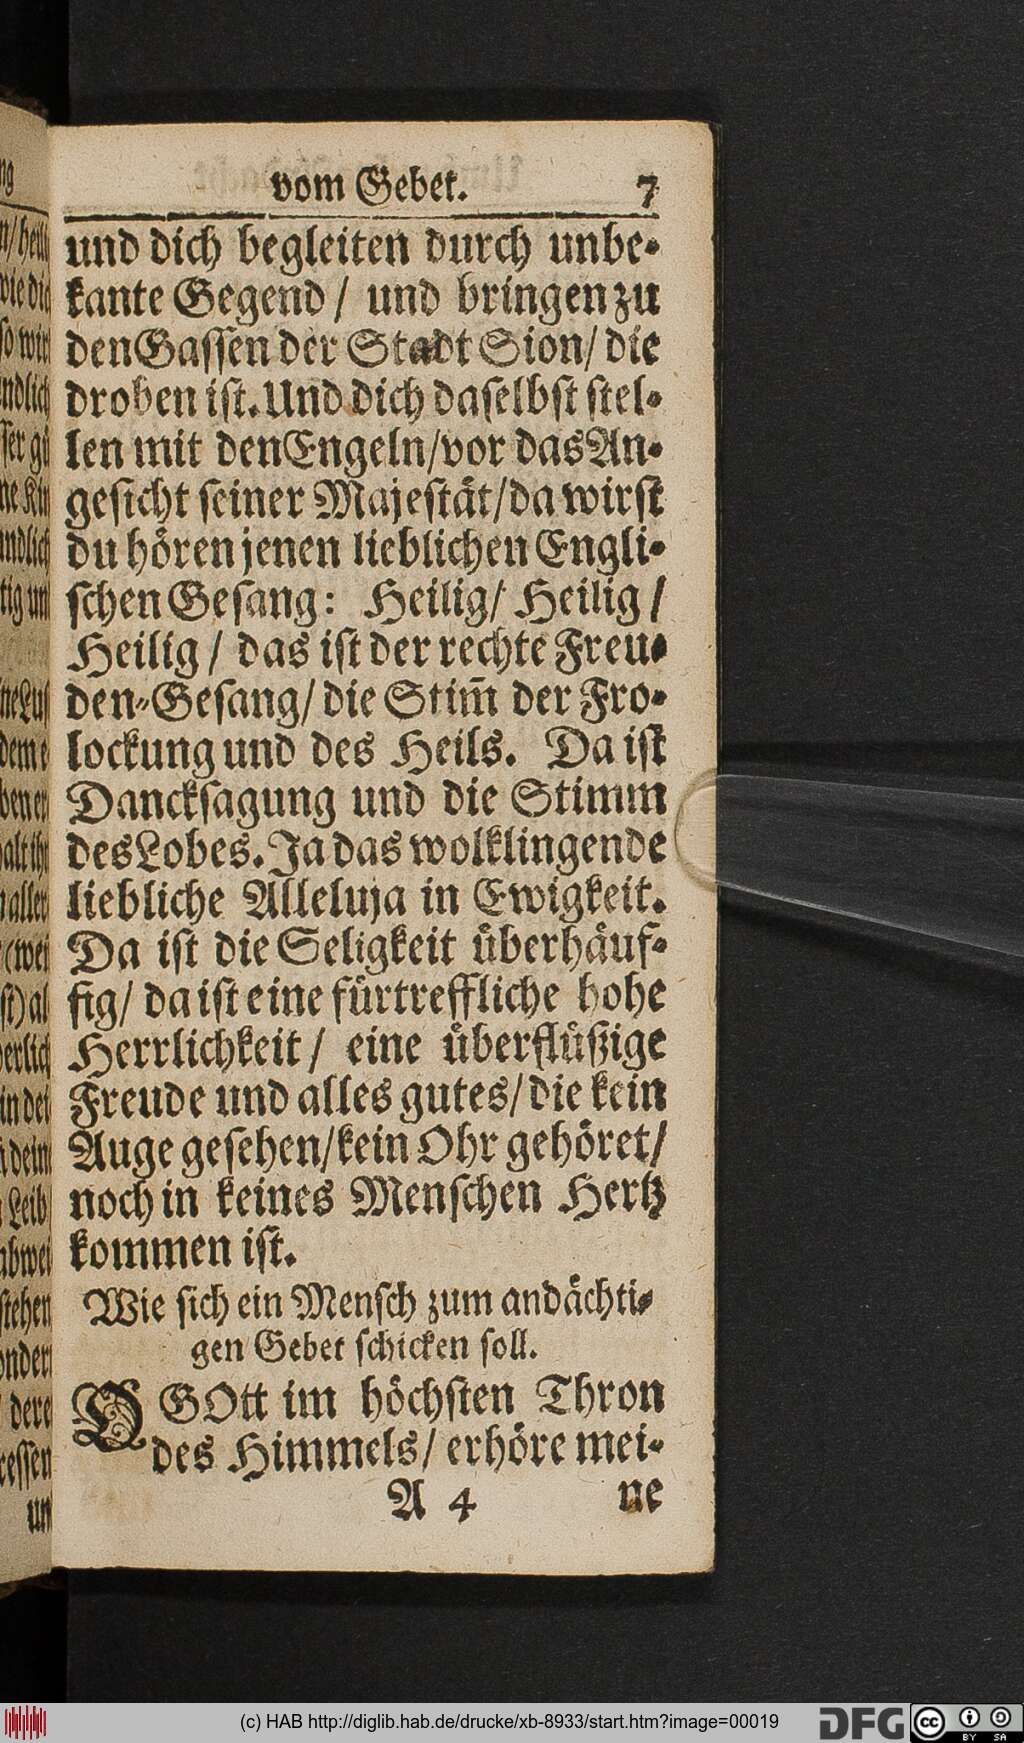 vom Gebet. 7
und dich begleiten durch unbe-
kante Gegend / und bringen zu
den Gassen der Stadt Sion / die
droben ist. Und dich daselbst stel-
len mit den Engeln / vor das An-
gesicht seiner Majestät / da wirst
du hören jenen lieblichen Engli-
schen Gesang: Heilig / Heilig /
Heilig / das ist der rechte Freu-
den-Gesang / die Stim̃ der Fro-
lockung und des Heils. Da ist
Dancksagung und die Stimm
des Lobes. Ja das wolklingende
liebliche Alleluja in Ewigkeit.
Da ist die Seligkeit überhäuf-
fig / da ist eine fürtreffliche hohe
Herrlichkeit / eine überflüßige
Freude und alles gutes / die kein
Auge gesehen / kein Ohr gehöret /
noch in keines Menschen Hertz
kommen ist.
Wie sich ein Mensch zum andächti-
gen Gebet schicken soll.
O GOtt im höchsten Thron
des Himmels / erhöre mei-
A 4 ne
(c) HAB http://diglib.hab.de/drucke/xb-8933/start.htm?image=00019
DFG
cc BY SA